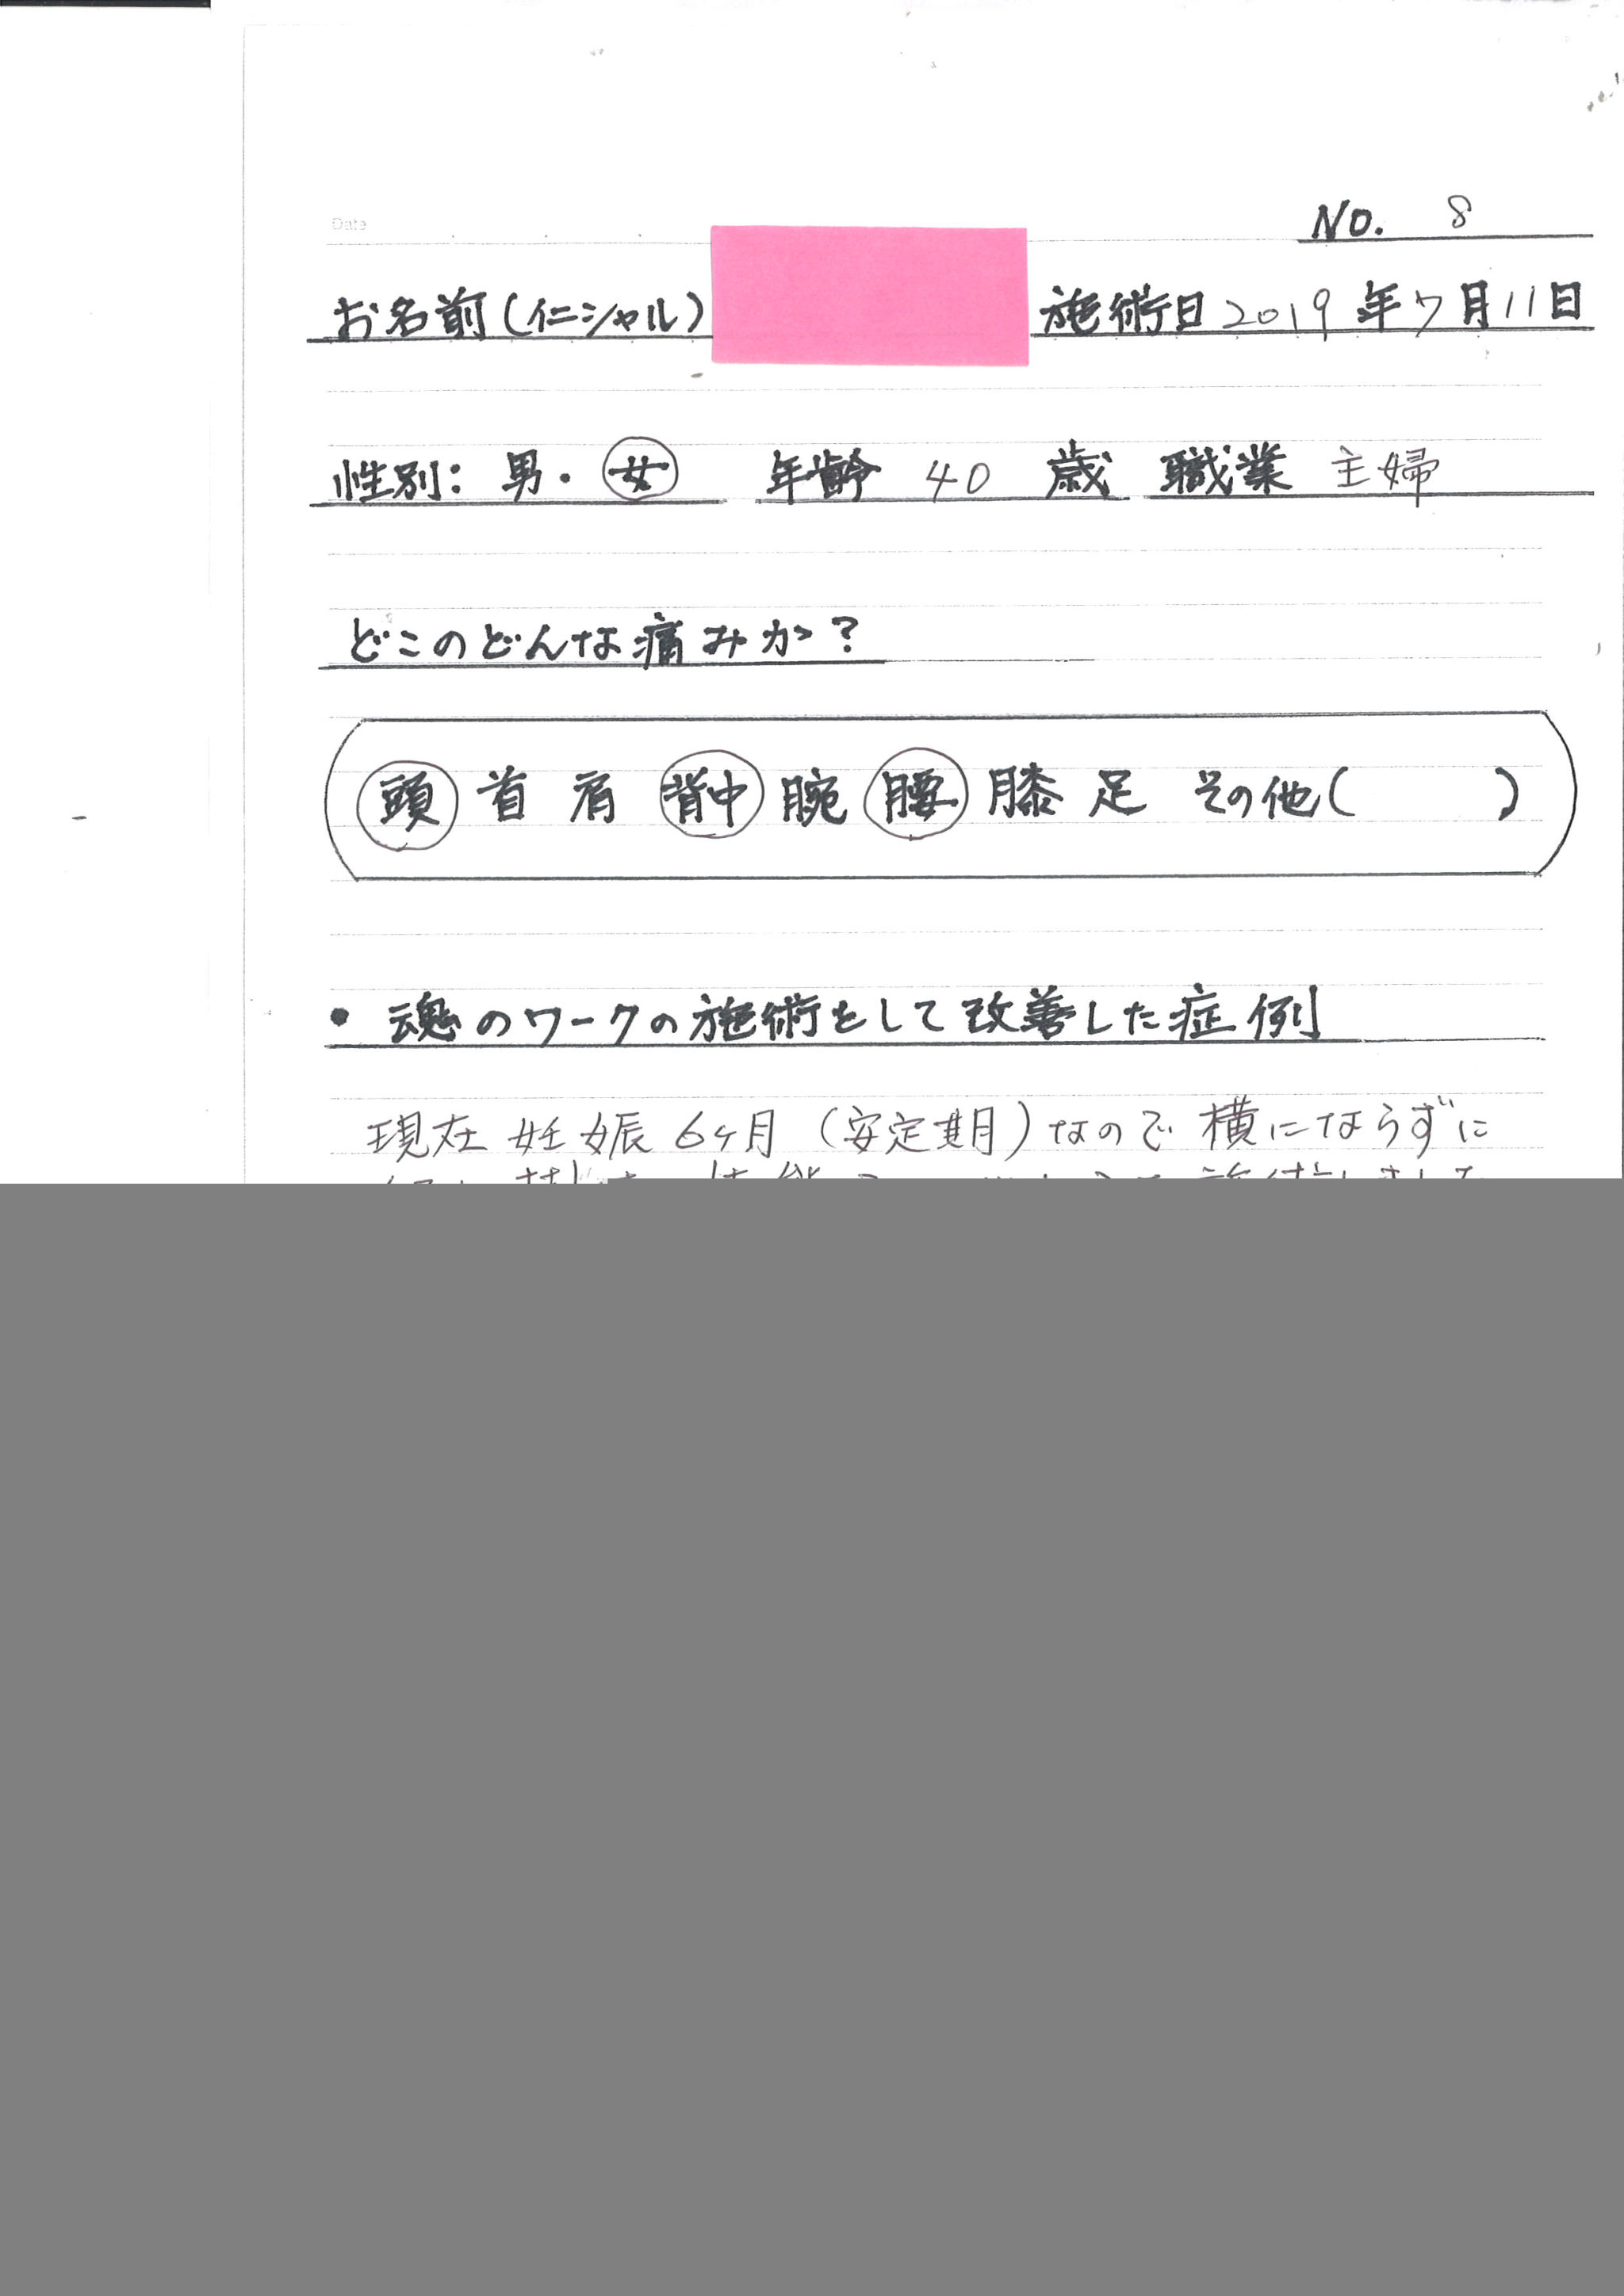 Date
No. 8
お名前(イニシャル) 施術日 2019年7月11日
性別: 男・女 年齢 40 歳 職業 主婦
どこのどんな痛みか?
頭 首 肩 背中 腕 腰 膝 足 その他( )
• 魂のワークの施術をして改善した症例
現在 妊娠 6ヶ月 (安定期)なので 横にならずに